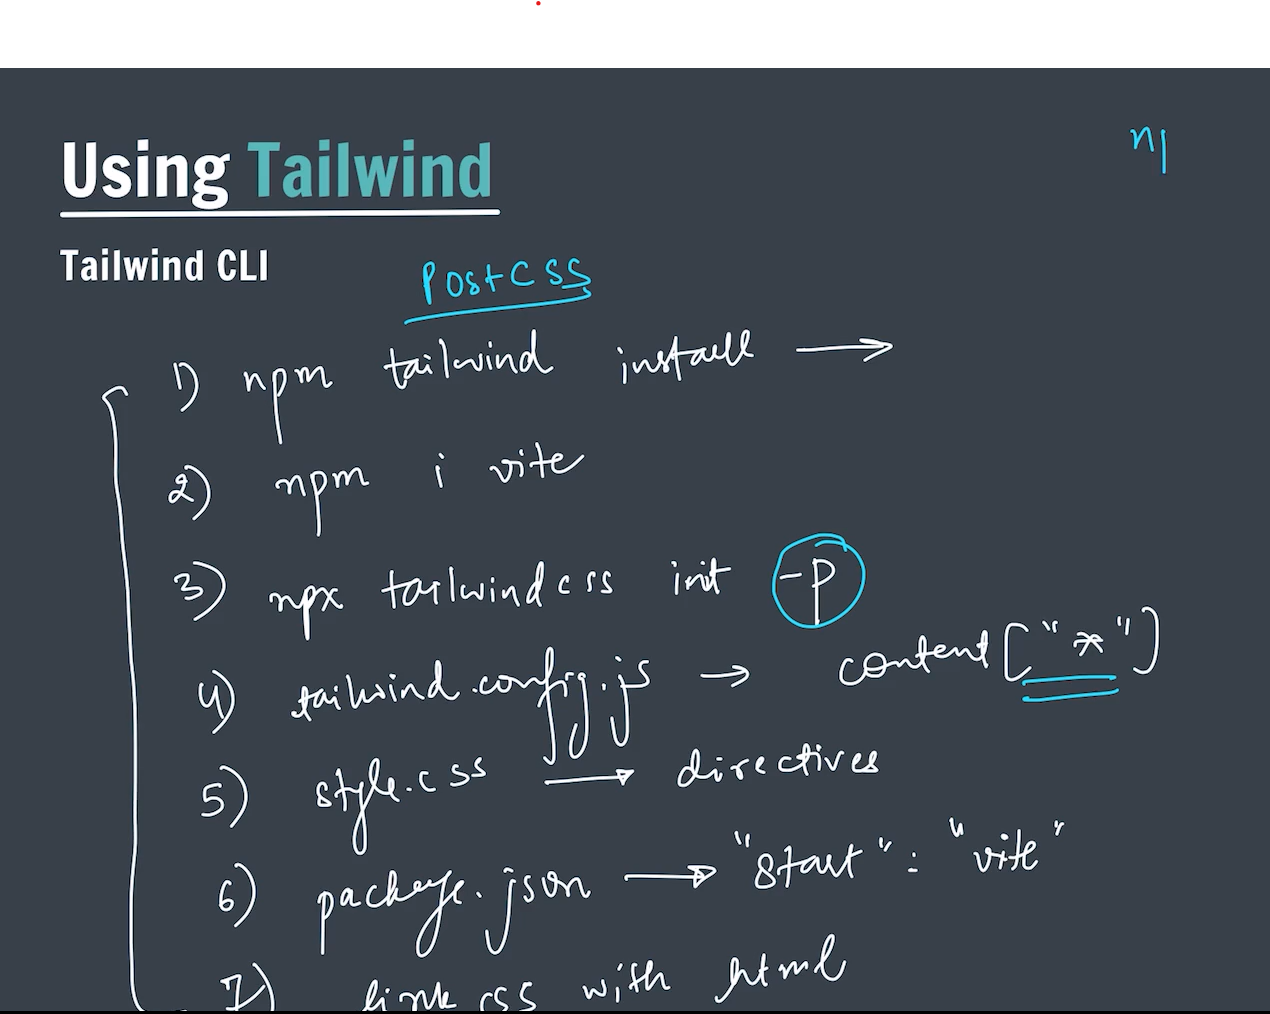 n|
Using Tailwind
Tailwind CLI
PostCSS
1) npm tailwind install →
2) npm i vite
3) npx tailwindcss init -p
4) tailwind.config.js → content["*"]
5) style.css → directives
6) package.json → "start" : "vite"
7) link css with html